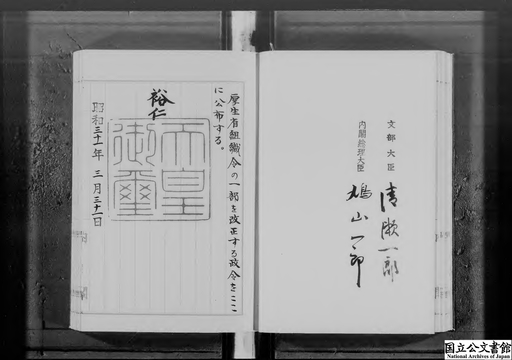 文部大臣 清瀬一郎
内閣総理大臣 鳩山一郎
厚生省組織令の一部を改正する政令をここ
に公布する。
裕仁
天皇
御璽
昭和三十一年 三月三十一日
国立公文書館
National Archives of Japan